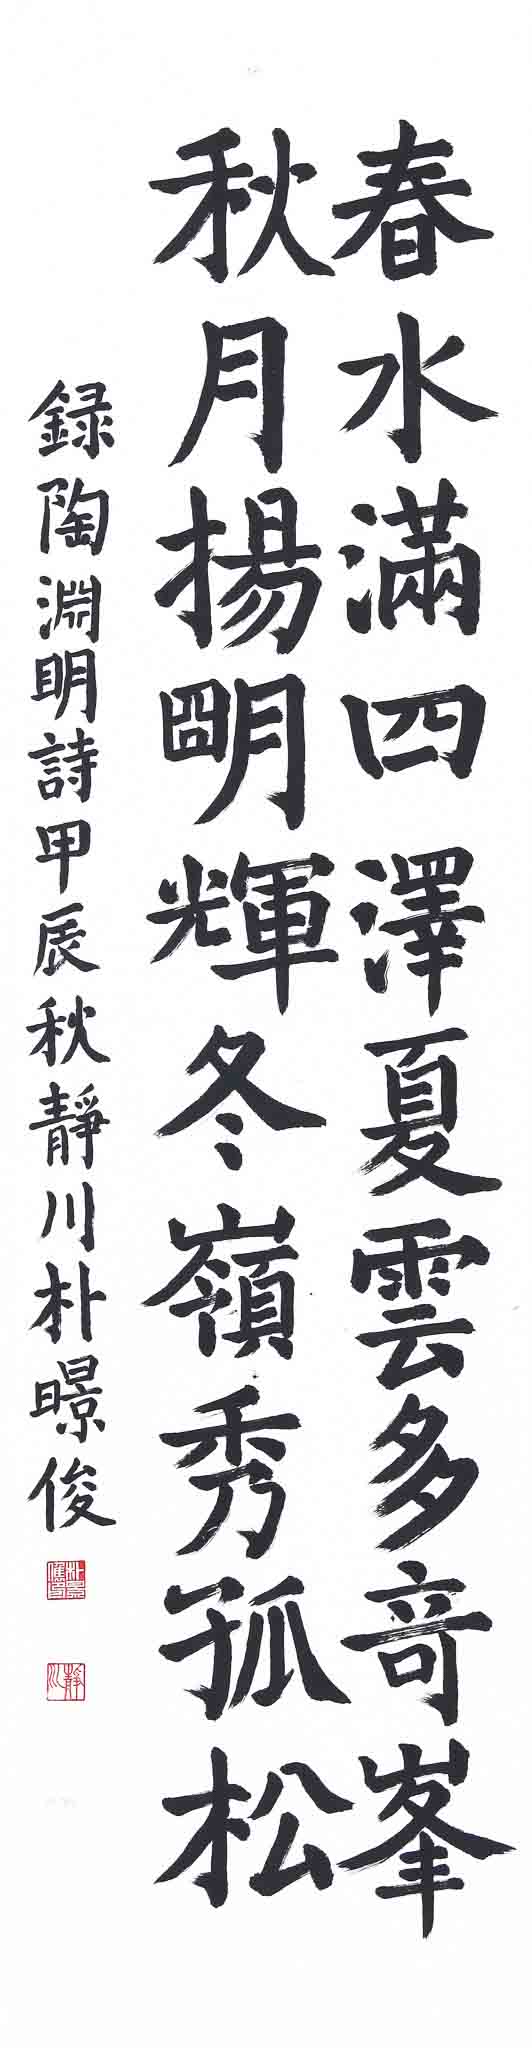 春水滿四澤夏雲多奇峯
秋月揚明輝冬嶺秀孤松
錄陶淵明詩甲辰秋靜川朴暻俊